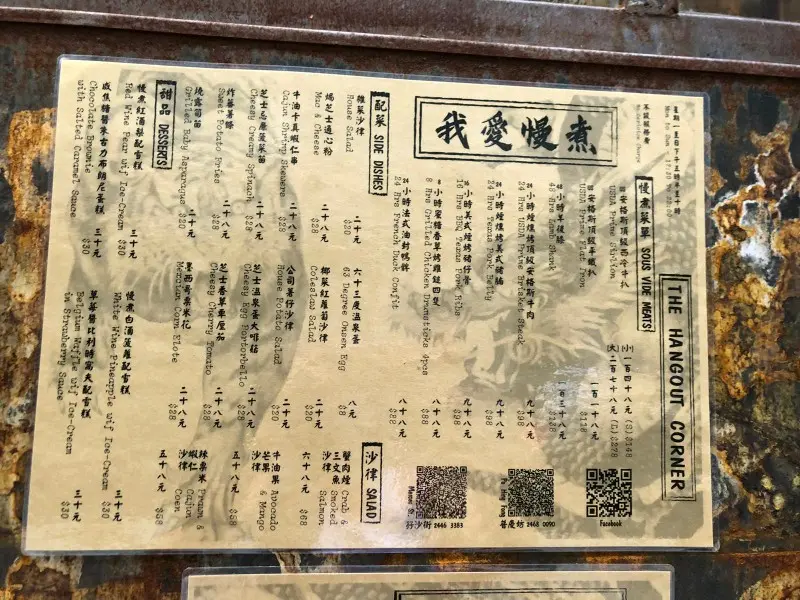 THE HANGOUT CORNER
我愛慢煮
星期一至日下午五時半至十時
Mon to Sun - 17:30 To 22:00
不設服務費
No Service Charge
慢煮菜單 SOUS VIDE MEATS
安格斯頂級西冷牛扒 (小) 一百四十八元
USDA Prime Striploin (S) $148
(大) 二百七十八元
(L) $278
安格斯頂級牛扒 一百一十八元
USDA Prime Flat Iron $118
48 小時羊後膝 一百三十八元
48 Hrs Lamb Shank $138
24 小時煙燻頂級安格斯牛肉 九十八元
24 Hrs USDA Prime Brisket Steak $98
24 小時煙燻美式豬腩 九十八元
24 Hrs Texans Pork Belly $98
16 小時美式煙烤豬仔骨 九十八元
16 Hrs BBQ Texans Pork Ribs $98
8 小時蜜糖香草烤雞鎚四隻 八十八元
8 Hrs Grilled Chicken Drumsticks 4pcs $88
24 小時法式油封鴨髀 八十八元
24 Hrs French Duck Confit $88
Facebook
Po Hing Fong
普慶坊 2468 0090
Mason St.
孖沙街 2446 3383
配菜 SIDE DISHES
雜菜沙律 二十元
House Salad $20
焗芝士通心粉 二十八元
Mac & Cheese $28
牛油卡真蝦仁串 二十八元
Cajun Shrimp Skewers $28
芝士忌廉菠菜苗 二十八元
Cheesy Creamy Spinach $28
炸蕃薯條 二十八元
Sweet Potato Fries $28
燒露筍苗 二十元
Grilled Baby Asparagus $20
六十三度溫泉蛋 八元
63 Degree Onsen Egg $8
椰菜紅蘿蔔沙律 二十元
Coleslaw Salad $20
公司薯仔沙律 二十元
House Potato Salad $20
芝士溫泉蛋大啡菇 二十八元
Cheesy Egg Portorbello $28
芝士香草車厘茄 二十八元
Cheesy Cherry Tomato $28
墨西哥粟米花 二十八元
Mexcian Corn Elote $28
沙律 SALAD
蟹肉煙三文魚沙律 六十八元
Crab & Smoked Salmon $68
牛油果芒果沙律 五十八元
Avocado & Mango $58
辣粟米蝦仁沙律 五十八元
Prawn & Cajun Coen $58
甜品 DESSERTS
慢煮紅酒梨配雪糕 三十元
Red Wine Pear wif Ice-Cream $30
咸焦糖醬朱古力布朗尼蛋糕 三十元
Chocolate Brownie
with Salted Caramel Sauce $30
慢煮白酒菠蘿配雪糕 三十元
White Wine Pineapple wif Ice-Cream $30
草莓醬比利時窩夫配雪糕 三十元
Belgium Waffle wif Ice-Cream
in Strawberry Sauce $30